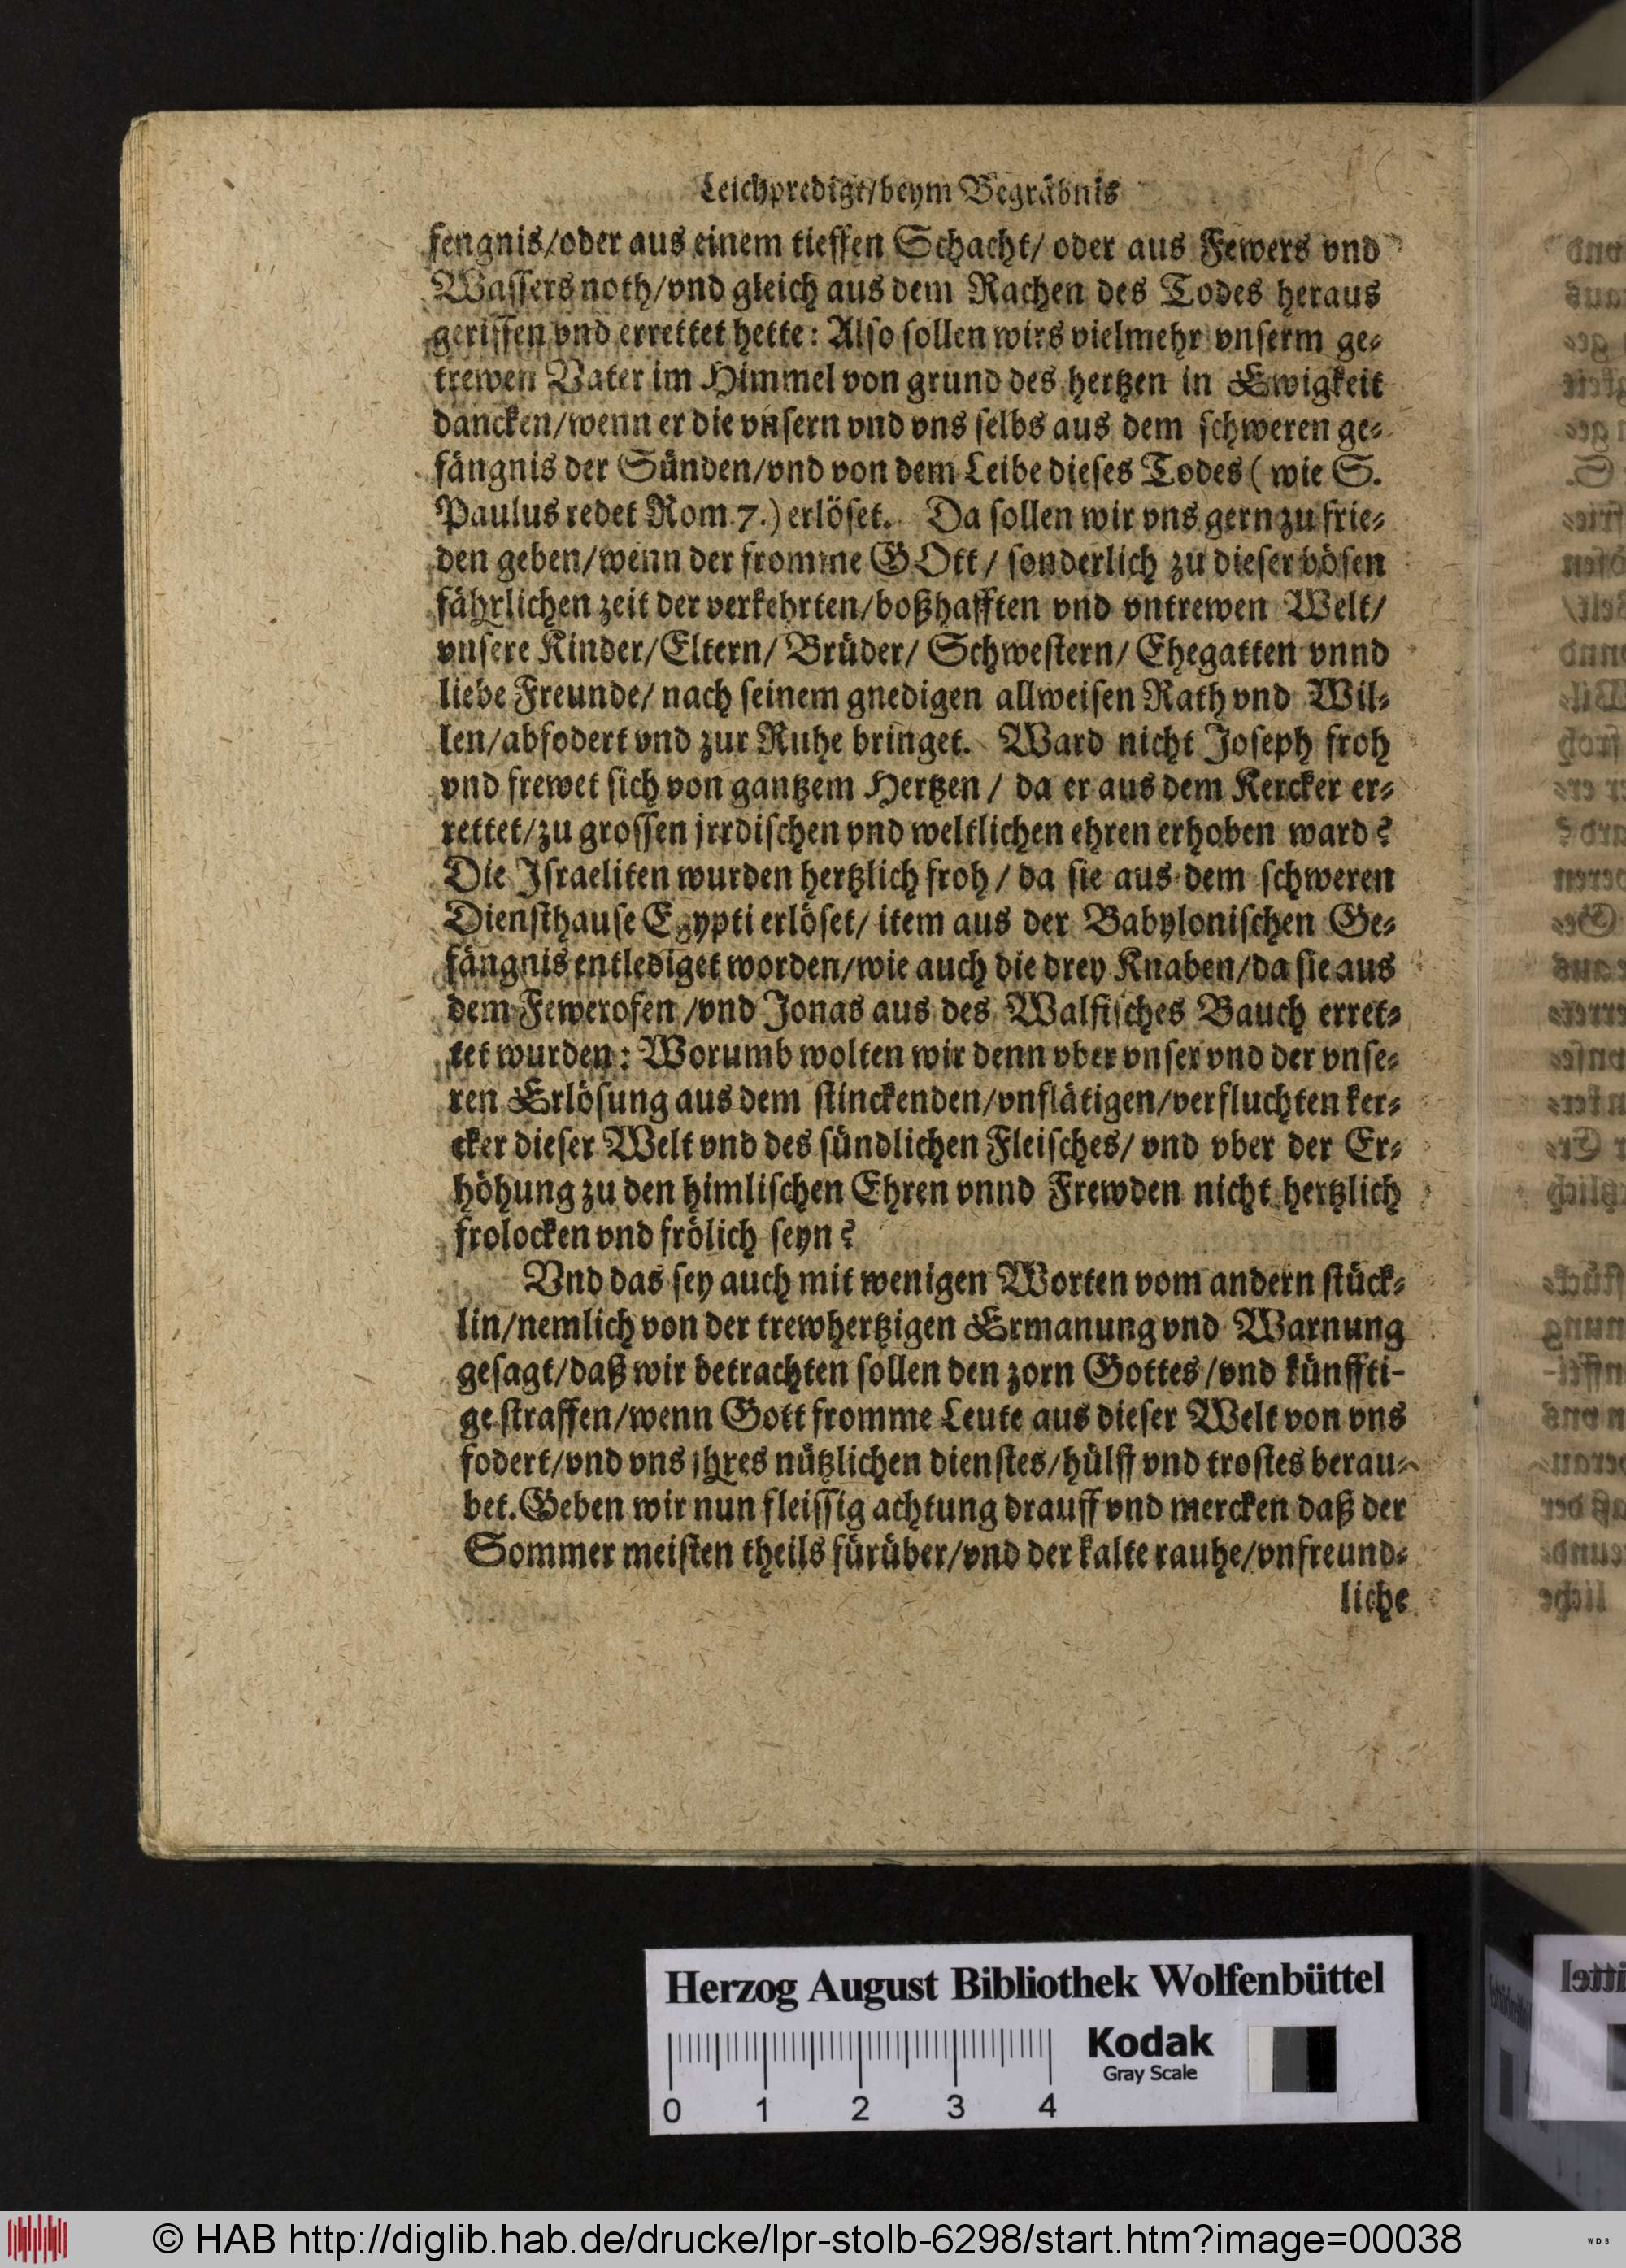 Leichpredigt/beym Begräbnis
fengnis/oder aus einem tieffen Schacht/ oder aus Fewers vnd
Wassers noth/vnd gleich aus dem Rachen des Todes heraus
gerissen vnd errettet hette: Also sollen wirs vielmehr vnserm ge-
trewen Vater im Himmel von grund des hertzen in Ewigkeit
dancken/wenn er die vnsern vnd vns selbs aus dem schweren ge-
fängnis der Sünden/vnd von dem Leibe dieses Todes (wie S.
Paulus redet Rom. 7.) erlöset. Da sollen wir vns gern zu frie-
den geben/wenn der fromme GOtt/ sonderlich zu dieser bösen
fährlichen zeit der verkehrten/boßhafften vnd vntrewen Welt/
vnsere Kinder/Eltern/ Brüder/ Schwestern/ Ehegatten vnnd
liebe Freunde/ nach seinem gnedigen allweisen Rath vnd Wil-
len/abfodert vnd zur Ruhe bringet. Ward nicht Joseph froh
vnd frewet sich von gantzem Hertzen/ da er aus dem Kercker er-
rettet/zu grossen jrrdischen vnd weltlichen ehren erhoben ward?
Die Israeliten wurden hertzlich froh/ da sie aus dem schweren
Diensthause Egypti erlöset/ item aus der Babylonischen Ge-
fängnis entlediget worden/wie auch die drey Knaben/da sie aus
dem Fewerofen/vnd Jonas aus des Walfisches Bauch erret-
tet wurden: Worumb wolten wir denn vber vnser vnd der vnse-
ren Erlösung aus dem stinckenden/vnflätigen/verfluchten ker-
cker dieser Welt vnd des sündlichen Fleisches/ vnd vber der Er-
höhung zu den himlischen Ehren vnnd Frewden nicht hertzlich
frolocken vnd frölich seyn?
Vnd das sey auch mit wenigen Worten vom andern stück-
lin/nemlich von der trewhertzigen Ermanung vnd Warnung
gesagt/daß wir betrachten sollen den zorn Gottes/vnd künffti-
ge straffen/wenn Gott fromme Leute aus dieser Welt von vns
fodert/vnd vns jhres nützlichen dienstes/hülff vnd trostes berau-
bet. Geben wir nun fleissig achtung drauff vnd mercken daß der
Sommer meisten theils fürüber/vnd der kalte rauhe/vnfreund-
liche
Herzog August Bibliothek Wolfenbüttel
Kodak
Gray Scale
0 1 2 3 4
© HAB http://diglib.hab.de/drucke/lpr-stolb-6298/start.htm?image=00038
W D B